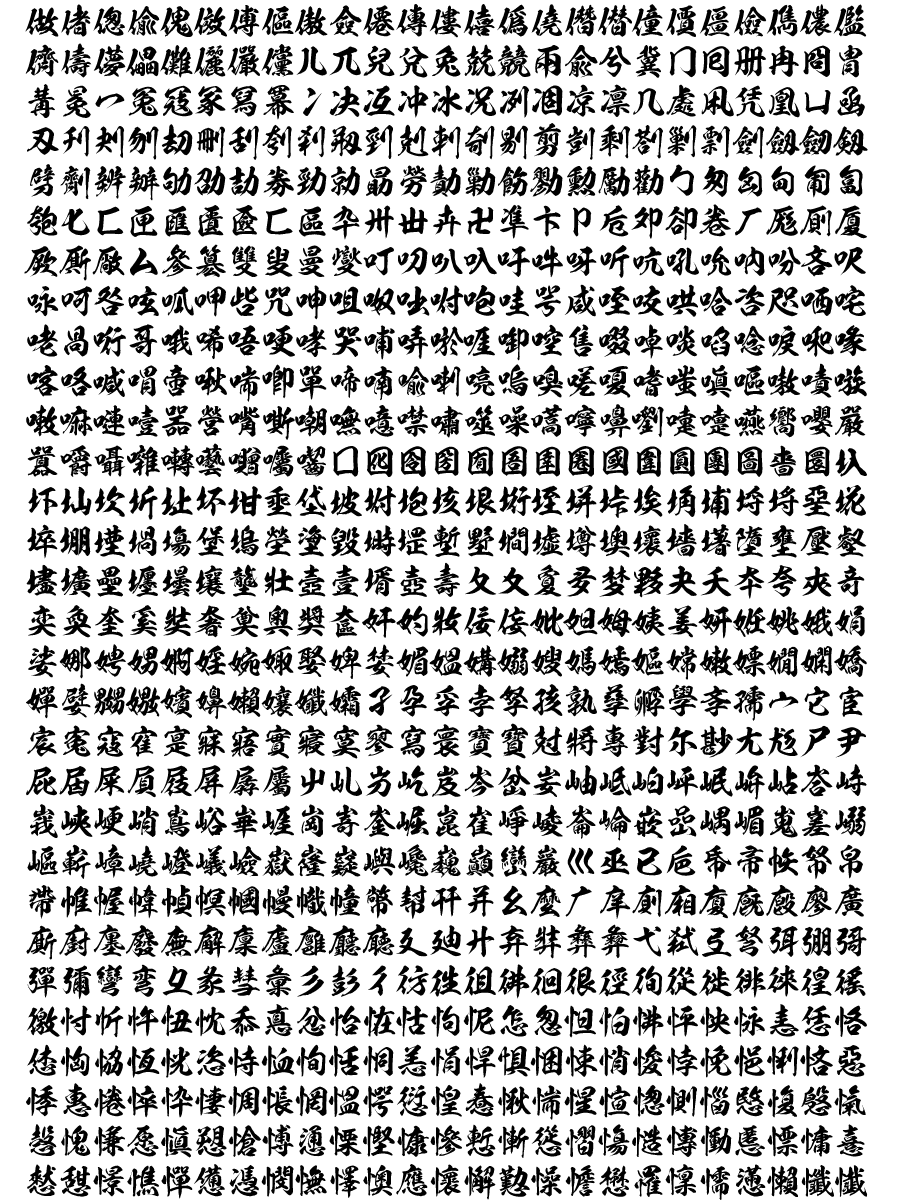 做偖偬偸傀傚傅傴傲僉僊傳僂僖僞僥僭僣僮價僵儉儁儂儖
儕儔儚儡儺儷儼儻儿兀兒兌兔兢竸兩兪兮冀冂囘册冉冏冑
冓冕冖冤冦冢冩冪冫决冱冲冰况冽凅凉凛几處凩凭凰凵凾
刄刋刔刎刧刪刮刳刹剏剄剋剌剞剔剪剴剩剳剿剽劍劔劒剱
劈劑辨辧劬劭劼劵勁勍勗勞勣勦飭勠勳勵勸勹匆匈甸匍匐
匏匕匚匣匯匱匳匸區卆卅丗卉卍凖卞卩卮夘卻卷厂厖厠厦
厥厮厰厶參簒雙叟曼燮叮叨叭叺吁吽呀听吭吼吮吶吩吝呎
咏呵咎呟呱呷呰咒呻咀呶咄咐咆哇咢咸咥咬哄哈咨咫哂咤
咾咼哘哥哦唏唔哽哮哭哺哢唹啀啣啌售啜啅啖啗唸唳啝喙
喀咯喊喟啻啾喘喞單啼喃喩喇喨嗚嗅嗟嗄嗜嗤嗔嘔嗷嘖嗾
嗽嘛嗹噎噐營嘴嘶嘲嘸噫噤嘯噬噪嚆嚀嚊嚠嚔嚏嚥嚮嚶嚴
囂嚼囁囃囀囈囎囑囓囗囮囹圀囿圄圉圈國圍圓團圖嗇圜圦
圷圸坎圻址坏坩埀垈坡坿垉垓垠垳垤垪垰埃埆埔埒埓堊埖
埣堋堙堝塲堡塢塋塰毀塒堽塹墅墹墟墫墺壞墻墸墮壅壓壑
壗壙壘壥壜壤壟壯壺壹壻壼壽夂夊夐夛梦夥夬夭夲夸夾竒
奕奐奎奚奘奢奠奧奬奩奸妁妝佞侫妣妲姆姨姜妍姙姚娥娟
娑娜娉娚婀婬婉娵娶婢婪媚媼媾嫋嫂媽嫣嫗嫦嫩嫖嫺嫻嬌
嬋嬖嬲嫐嬪嬶嬾孃孅孀孑孕孚孛孥孩孰孳孵學斈孺宀它宦
宸寃寇寉寔寐寤實寢寞寥寫寰寶寳尅將專對尓尠尢尨尸尹
屁屆屎屓屐屏孱屬屮乢屶屹岌岑岔妛岫岻岶岼岷峅岾峇峙
峩峽峺峭嶌峪崋崕崗嵜崟崛崑崔崢崚崙崘嵌嵒嵎嵋嵬嵳嵶
嶇嶄嶂嶢嶝嶬嶮嶽嶐嶷嶼巉巍巓巒巖巛巫已巵帋帚帙帑帛
帶帷幄幃幀幎幗幔幟幢幤幇幵并幺麼广庠廁廂廈廐廏廖廣
廝廚廛廢廡廨廩廬廱廳廰廴廸廾弃弉彝彜弋弑弖弩弭弸彁
彈彌彎弯彑彖彗彙彡彭彳彷徃徂彿徊很徑徇從徙徘徠徨徭
徼忖忻忤忸忱忝悳忿怡恠怙怐怩怎怱怛怕怫怦怏怺恚恁恪
恷恟恊恆恍恣恃恤恂恬恫恙悁悍惧悃悚悄悛悖悗悒悧悋惡
悸惠惓悴忰悽惆悵惘慍愕愆惶惷愀惴惺愃愡惻惱愍愎慇愾
愨愧慊愿愼愬愴愽慂慄慳慷慘慙慚慫慴慯慥慱慟慝慓慵憙
憖憇憬憔憚憊憑憫憮懌懊應懷懈懃懆憺懋罹懍懦懣懶懺懴